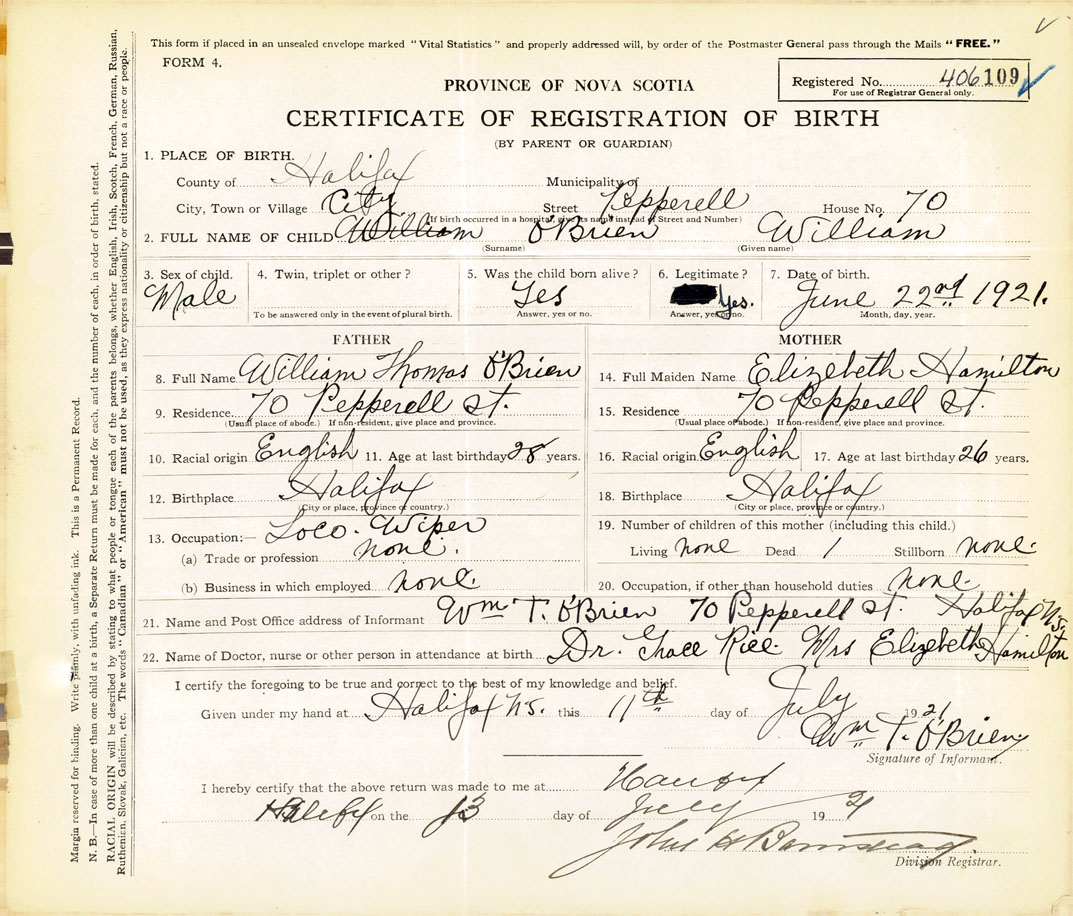 This form if placed in an unsealed envelope marked "Vital Statistics" and properly addressed will, by order of the Postmaster General pass through the Mails "FREE."
FORM 4.
Registered No. 406109
For use of Registrar General only.
PROVINCE OF NOVA SCOTIA
CERTIFICATE OF REGISTRATION OF BIRTH
(BY PARENT OR GUARDIAN)
1. PLACE OF BIRTH.
County of Halifax Municipality of
City, Town or Village City Street Pepperell House No. 70
(If birth occurred in a hospital, give its name instead of Street and Number)
2. FULL NAME OF CHILD William O'Brien William
(Surname) (Given name)
3. Sex of child. 4. Twin, triplet or other? 5. Was the child born alive? 6. Legitimate? 7. Date of birth.
Male Yes Yes. June 22nd 1921.
To be answered only in the event of plural birth. Answer, yes or no. Answer, yes or no. Month, day, year.
FATHER
8. Full Name William Thomas O'Brien
9. Residence. 70 Pepperell St.
(Usual place of abode.) If non-resident, give place and province.
10. Racial origin English 11. Age at last birthday 28 years.
12. Birthplace Halifax
(City or place, province or country.)
13. Occupation:— Loco. Wiper
(a) Trade or profession none.
(b) Business in which employed none.
MOTHER
14. Full Maiden Name Elizebeth Hamilton
15. Residence 70 Pepperell St.
(Usual place of abode.) If non-resident, give place and province.
16. Racial origin English 17. Age at last birthday 26 years.
18. Birthplace Halifax
(City or place, province or country.)
19. Number of children of this mother (including this child.)
Living none Dead 1 Stillborn none.
20. Occupation, if other than household duties none.
21. Name and Post Office address of Informant Wm T. O'Brien 70 Pepperell St. Halifax N.S.
22. Name of Doctor, nurse or other person in attendance at birth Dr. Grace Rice. Mrs Elizebeth Hamilton
I certify the foregoing to be true and correct to the best of my knowledge and belief.
Given under my hand at Halifax N.S. this 11th day of July 1921
Wm T. O'Brien
Signature of Informant.
I hereby certify that the above return was made to me at Halifax
Halifax on the 13 day of July 1921
John H
Division Registrar.
Margin reserved for binding. Write plainly, with unfading ink. This is a Permanent Record.
N. B.—In case of more than one child at a birth, a Separate Return must be made for each, and the number of each, in order of birth, stated.
RACIAL ORIGIN will be described by stating to what people or tongue each of the parents belongs, whether English, Irish, Scotch, French, German, Russian,
Ruthenian, Slovak, Galician, etc. The words "Canadian" or "American" must not be used, as they express nationality or citizenship but not a race or people.